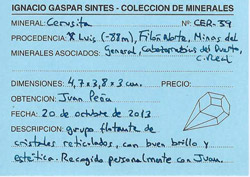 IGNACIO GASPAR SINTES - COLECCION DE MINERALES
MINERAL: Cerusita Nº CER-39
PROCEDENCIA: Luis (-88m), Filón Norte, Minas del
MINERALES ASOCIADOS: General, Cabezarrubias del Puerto,
C. Real
DIMENSIONES: 4,7 x 3,8 x 3 cm.
OBTENCION: Juan Peña
FECHA: 20 de octubre de 2013
DESCRIPCION: grupo flotante de
cristales reticulados, con buen brillo y
estética. Recogido personalmente con Juan.